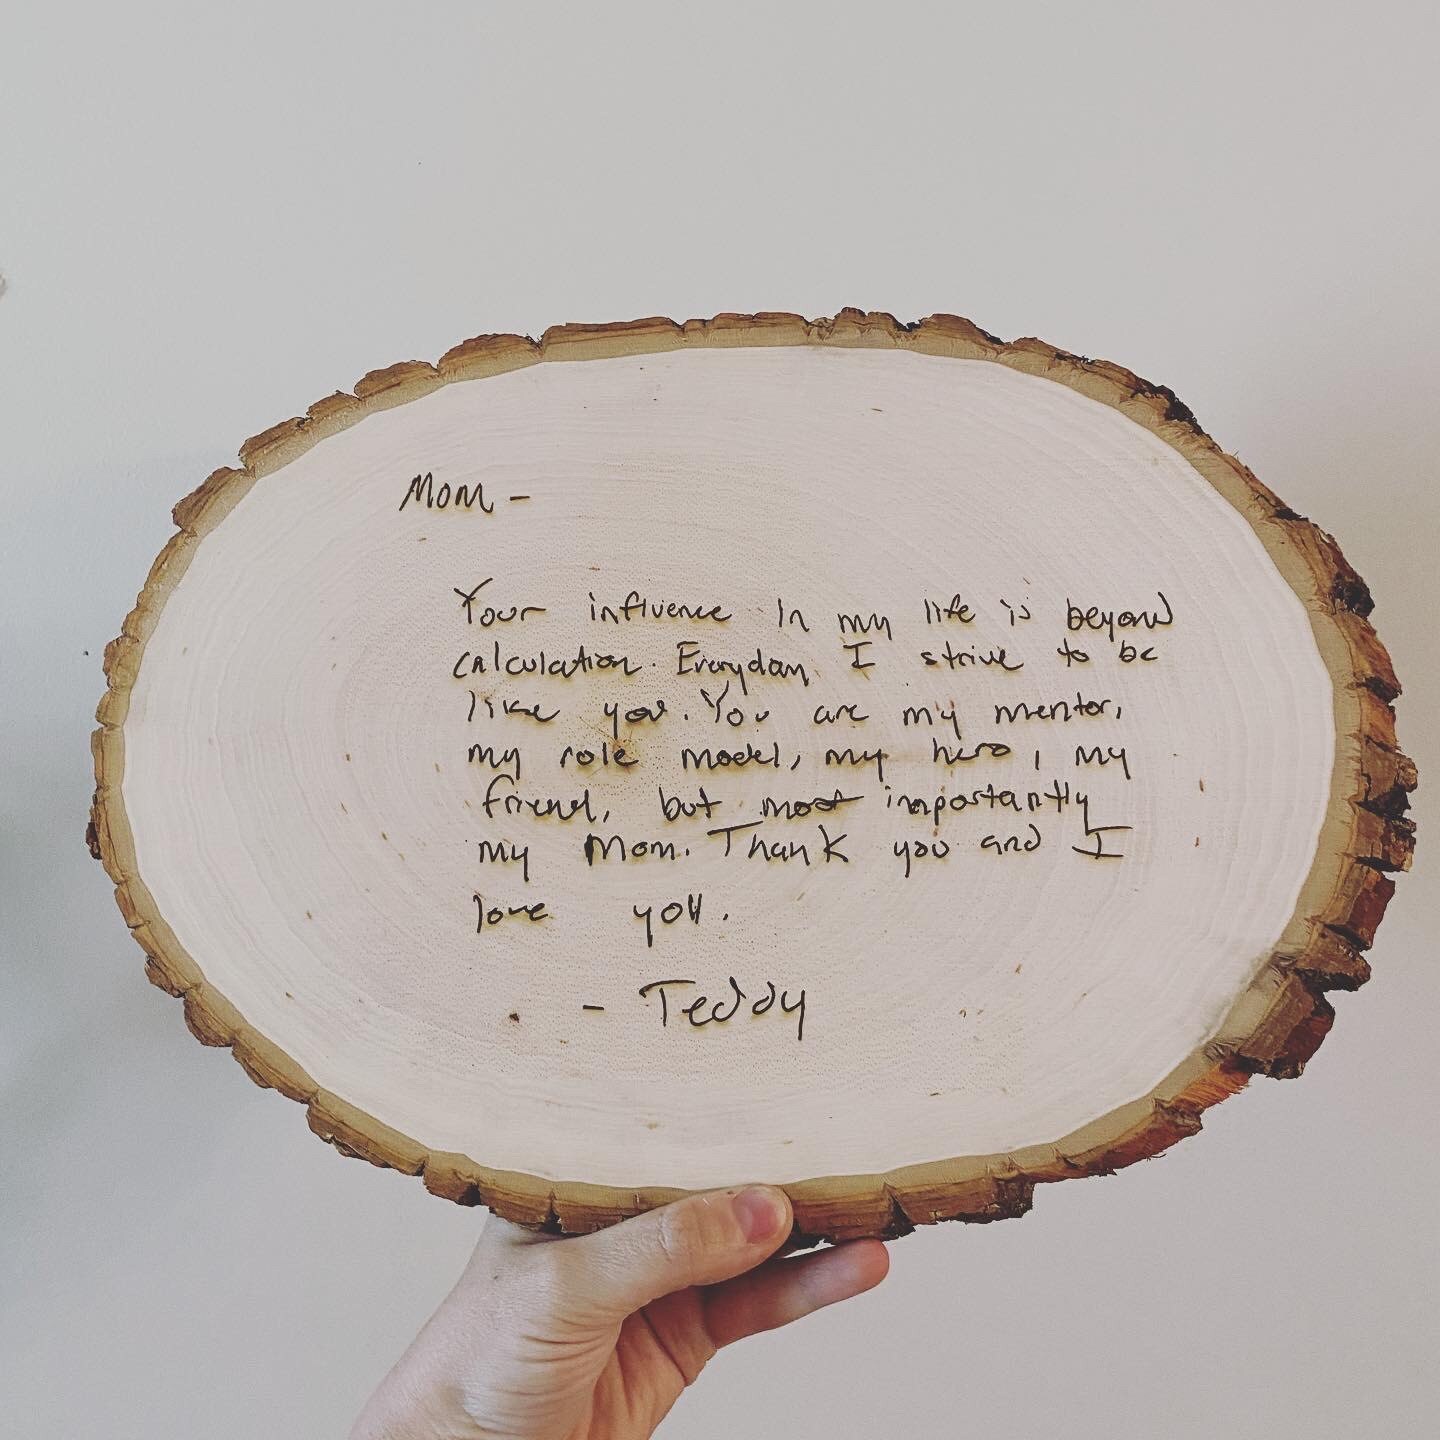 Mom -
Your influence in my life is beyond
calculation. Everyday I strive to be
like you. You are my mentor,
my role model, my hero, my
friend, but most importantly
my Mom. Thank you and I
love you.
- Teddy